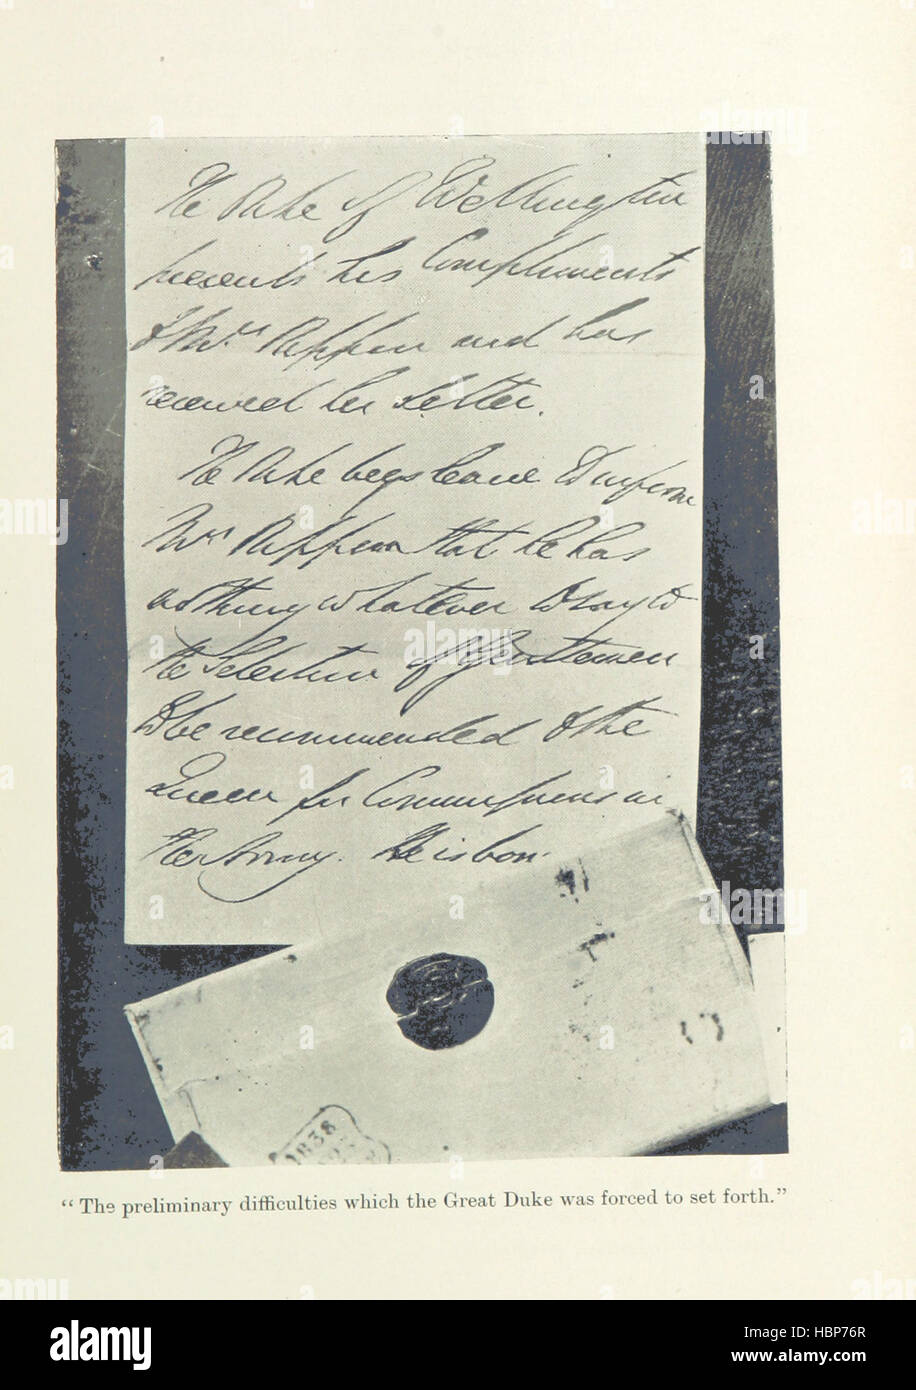 The Duke of Wellington
presents his Compliments
to Mrs and has
received her Letter.
The Duke begs leave to inform
Mrs that he has
nothing whatever to say to
the Selection of Gentlemen
to be recommended to the
Queen for Commissions in
Her Army. He is
1838
“ The preliminary difficulties which the Great Duke was forced to set forth.”
alamy
Image ID: HBP76R
www.alamy.com